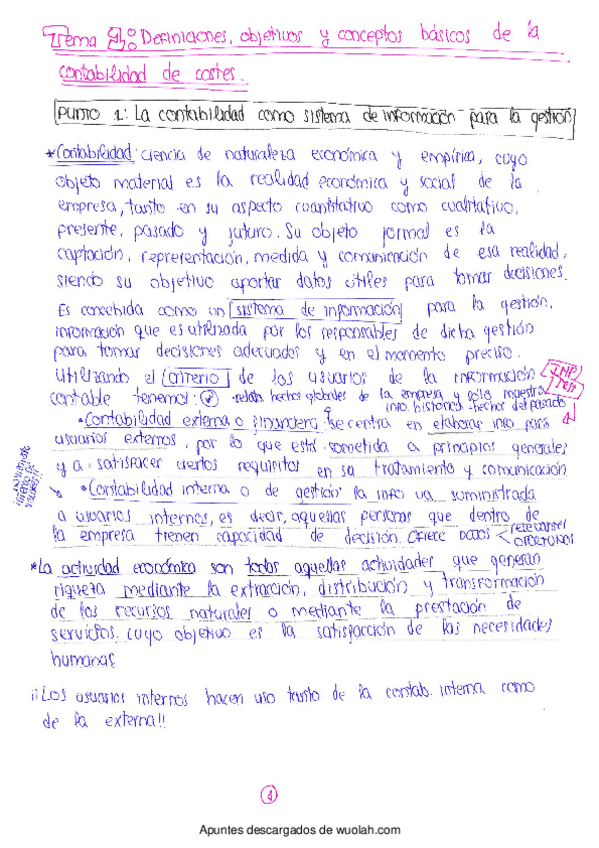 Tema 1: Definiciones, objetivos y conceptos básicos de la
contabilidad de costes.
PUNTO 1: La contabilidad como sistema de información para la gestión
*Contabilidad: ciencia de naturaleza económica y empírica, cuyo
objeto material es la realidad económica y social de la
empresa, tanto en su aspecto cuantitativo como cualitativo,
presente, pasado y futuro. Su objeto formal es la
captación, representación, medida y comunicación de esa realidad,
siendo su objetivo aportar datos útiles para tomar decisiones.
Es concebida como un sistema de información para la gestión,
información que es utilizada por los responsables de dicha gestión
para tomar decisiones adecuadas y en el momento preciso.
Utilizando el criterio de los usuarios de la información
IMP
Test
contable tenemos: relata hechos globales de la empresa y solo muestra
info. histórica - hechos del pasado
• Contabilidad externa o financiera: se centra en elaborar info para
usuarios externos, por lo que está sometida a principios generales
y a satisfacer ciertos requisitos en su tratamiento y comunicación
• Contabilidad interna o de gestión: la info va suministrada
a usuarios internos, es decir, aquellas personas que dentro de
la empresa tienen capacidad de decisión. Ofrece datos < relevantes
oportunos
*La actividad económica son todas aquellas actividades que generan
riqueza mediante la extracción, distribución y transformación
de los recursos naturales o mediante la prestación de
servicios, cuyo objetivo es la satisfacción de las necesidades
humanas
¡¡Los usuarios internos hacen uso tanto de la contab. interna como
de la externa!!
1
Apuntes descargados de wuolah.com